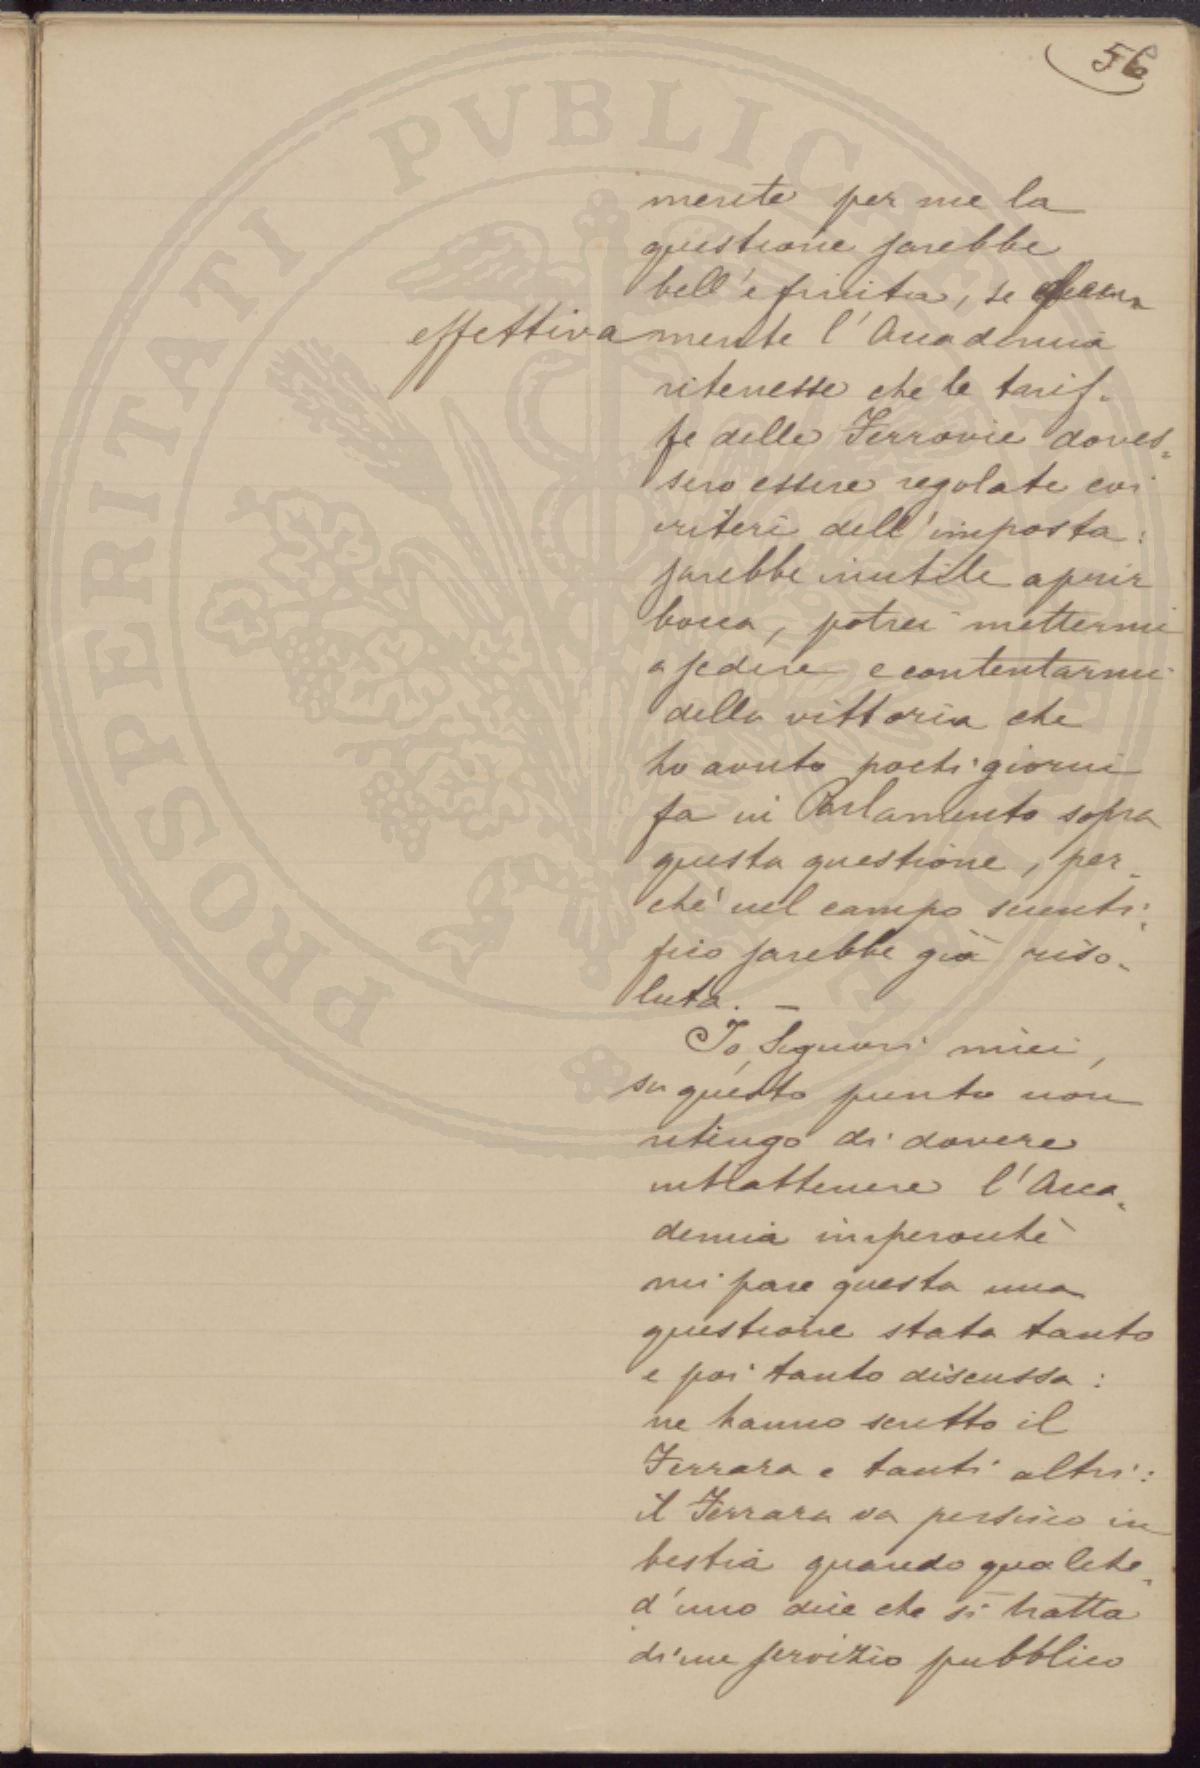 56
mente per me la
questione sarebbe
bell'e finita, se
effettivamente l'Accademia
ritenesse che le tarif-
fe delle Ferrovie doves=
sero essere regolate coi
criteri dell'imposta:
sarebbe inutile aprir
bocca, potrei mettermi
a sedere e contentarmi
della vittoria che
ho avuto pochi giorni
fa in Parlamento sopra
questa questione, per-
chè nel campo scienti-
fico sarebbe già riso-
luta. —
Io, Signori miei,
su questo punto non
ritengo di dovere
intrattenere l'Acca-
demia imperochè
mi pare questa una
questione stata tanto
e poi tanto discussa:
ne hanno scritto il
Ferrara e tanti altri:
il Ferrara va persino in
bestia quando qualche-
d'uno dice che si tratta
di un servizio pubblico
PROSPERITATI PVBLICAE